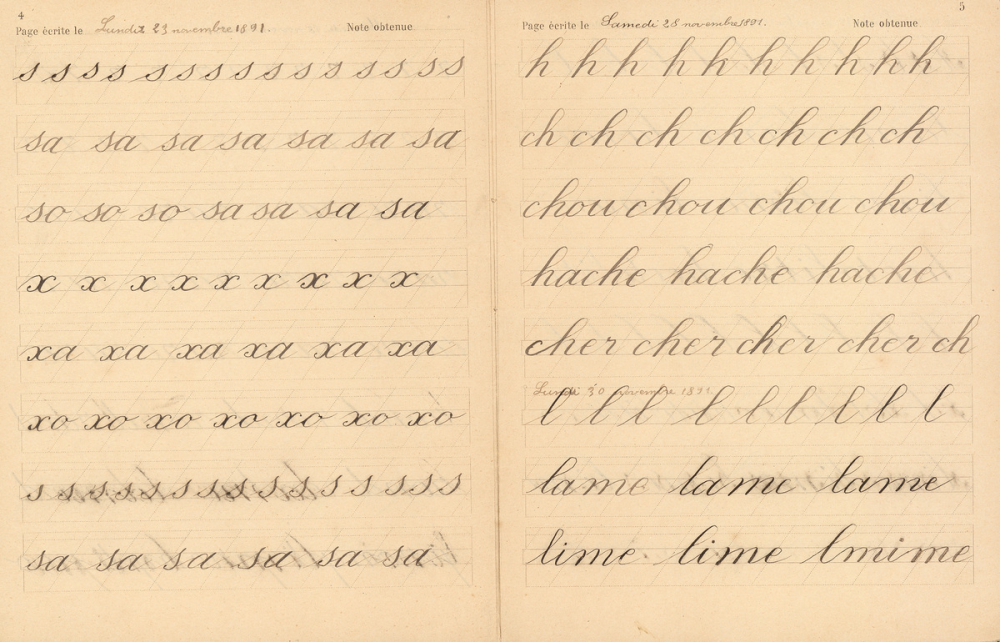 4
Page écrite le Lundit 23 novembre 1891. Note obtenue
s s s s s s s s s s s s s s s
sa sa sa sa sa sa sa
so so so sa sa sa sa
x x x x x x x x x
xa xa xa xa xa xa
xo xo xo xo xo xo xo
s s s s s s s s s s s s s s s
sa sa sa sa sa sa
5
Page écrite le Samedi 28 novembre 1891. Note obtenue
h h h h h h h h h h
ch ch ch ch ch ch ch
chou chou chou chou
hache hache hache
cher cher cher cher ch
Lundi 30 novembre 1891
l l l l l l l l l
lame lame lame
lime lime lmime